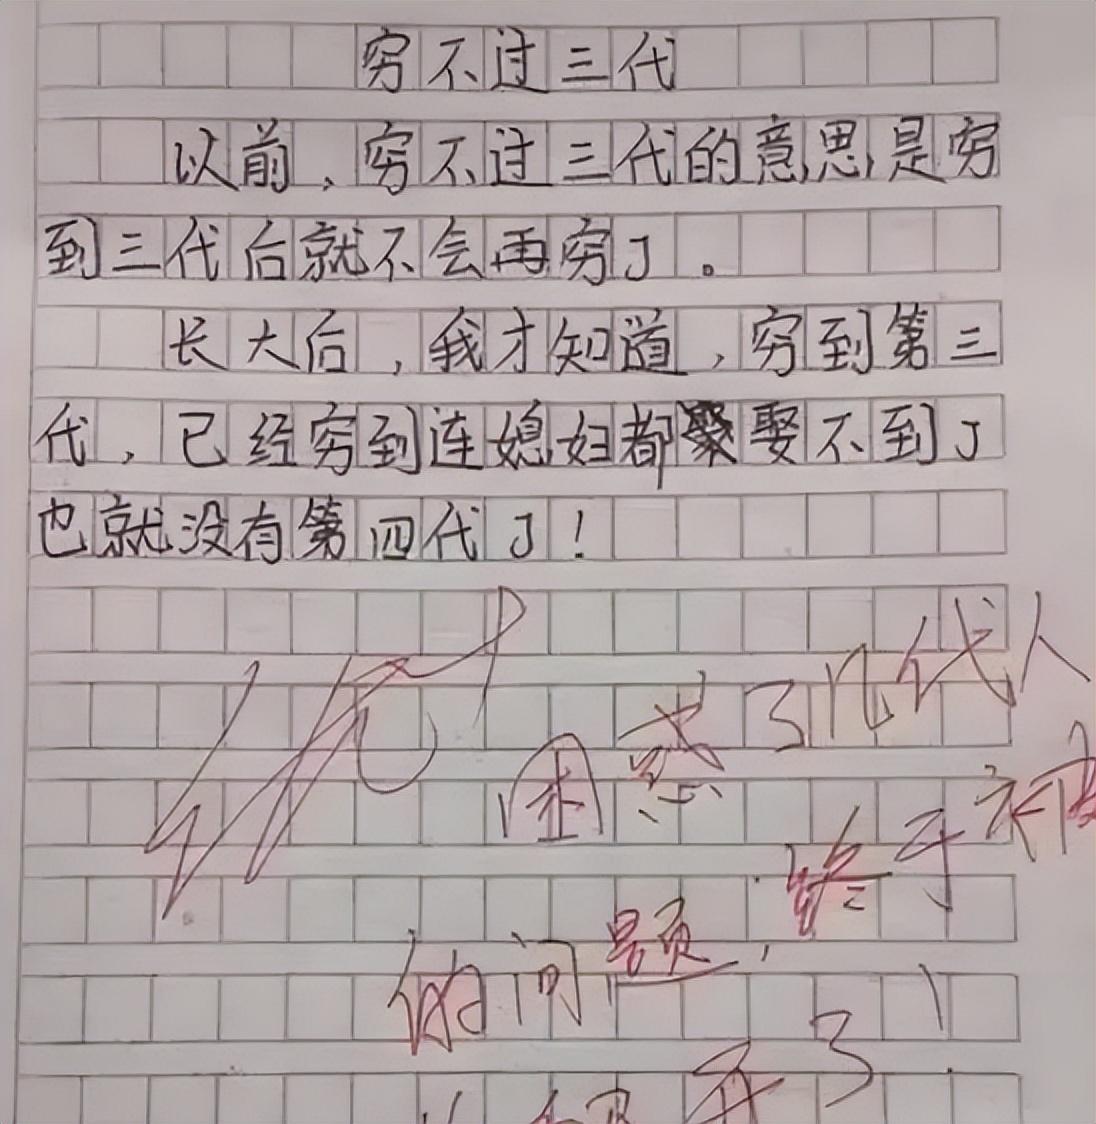 穷不过三代
以前，穷不过三代的意思是穷
到三代后就不会再穷了。
长大后，我才知道，穷到第三
代，已经穷到连媳妇都娶不到了
也就没有第四代了！
优
困惑了几代人
的问题，终于被
开了！